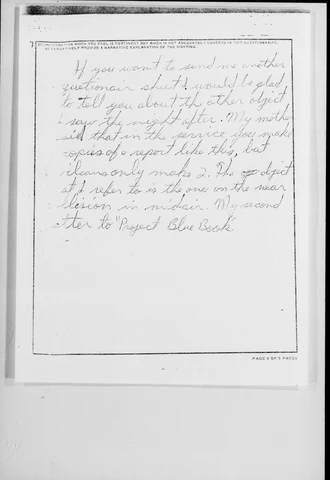 INFORMATION WHICH YOU FEEL IS PERTINENT BUT WHICH IS NOT ADEQUATELY COVERED IN THIS QUESTIONNAIRE.
ALTERNATIVELY PROVIDE A NARRATIVE EXPLANATION OF THE SIGHTING.
If you want to send me another
sheet I would be glad
to tell you about the other object
I saw the night after. My mothe
that in the service, you make
copies of a report like this, but
only make 2. The object
I refer to is the one on the near
lision in midair. My second
tter to "Project Blue Book"
PAGE 5 OF 5 PAGES